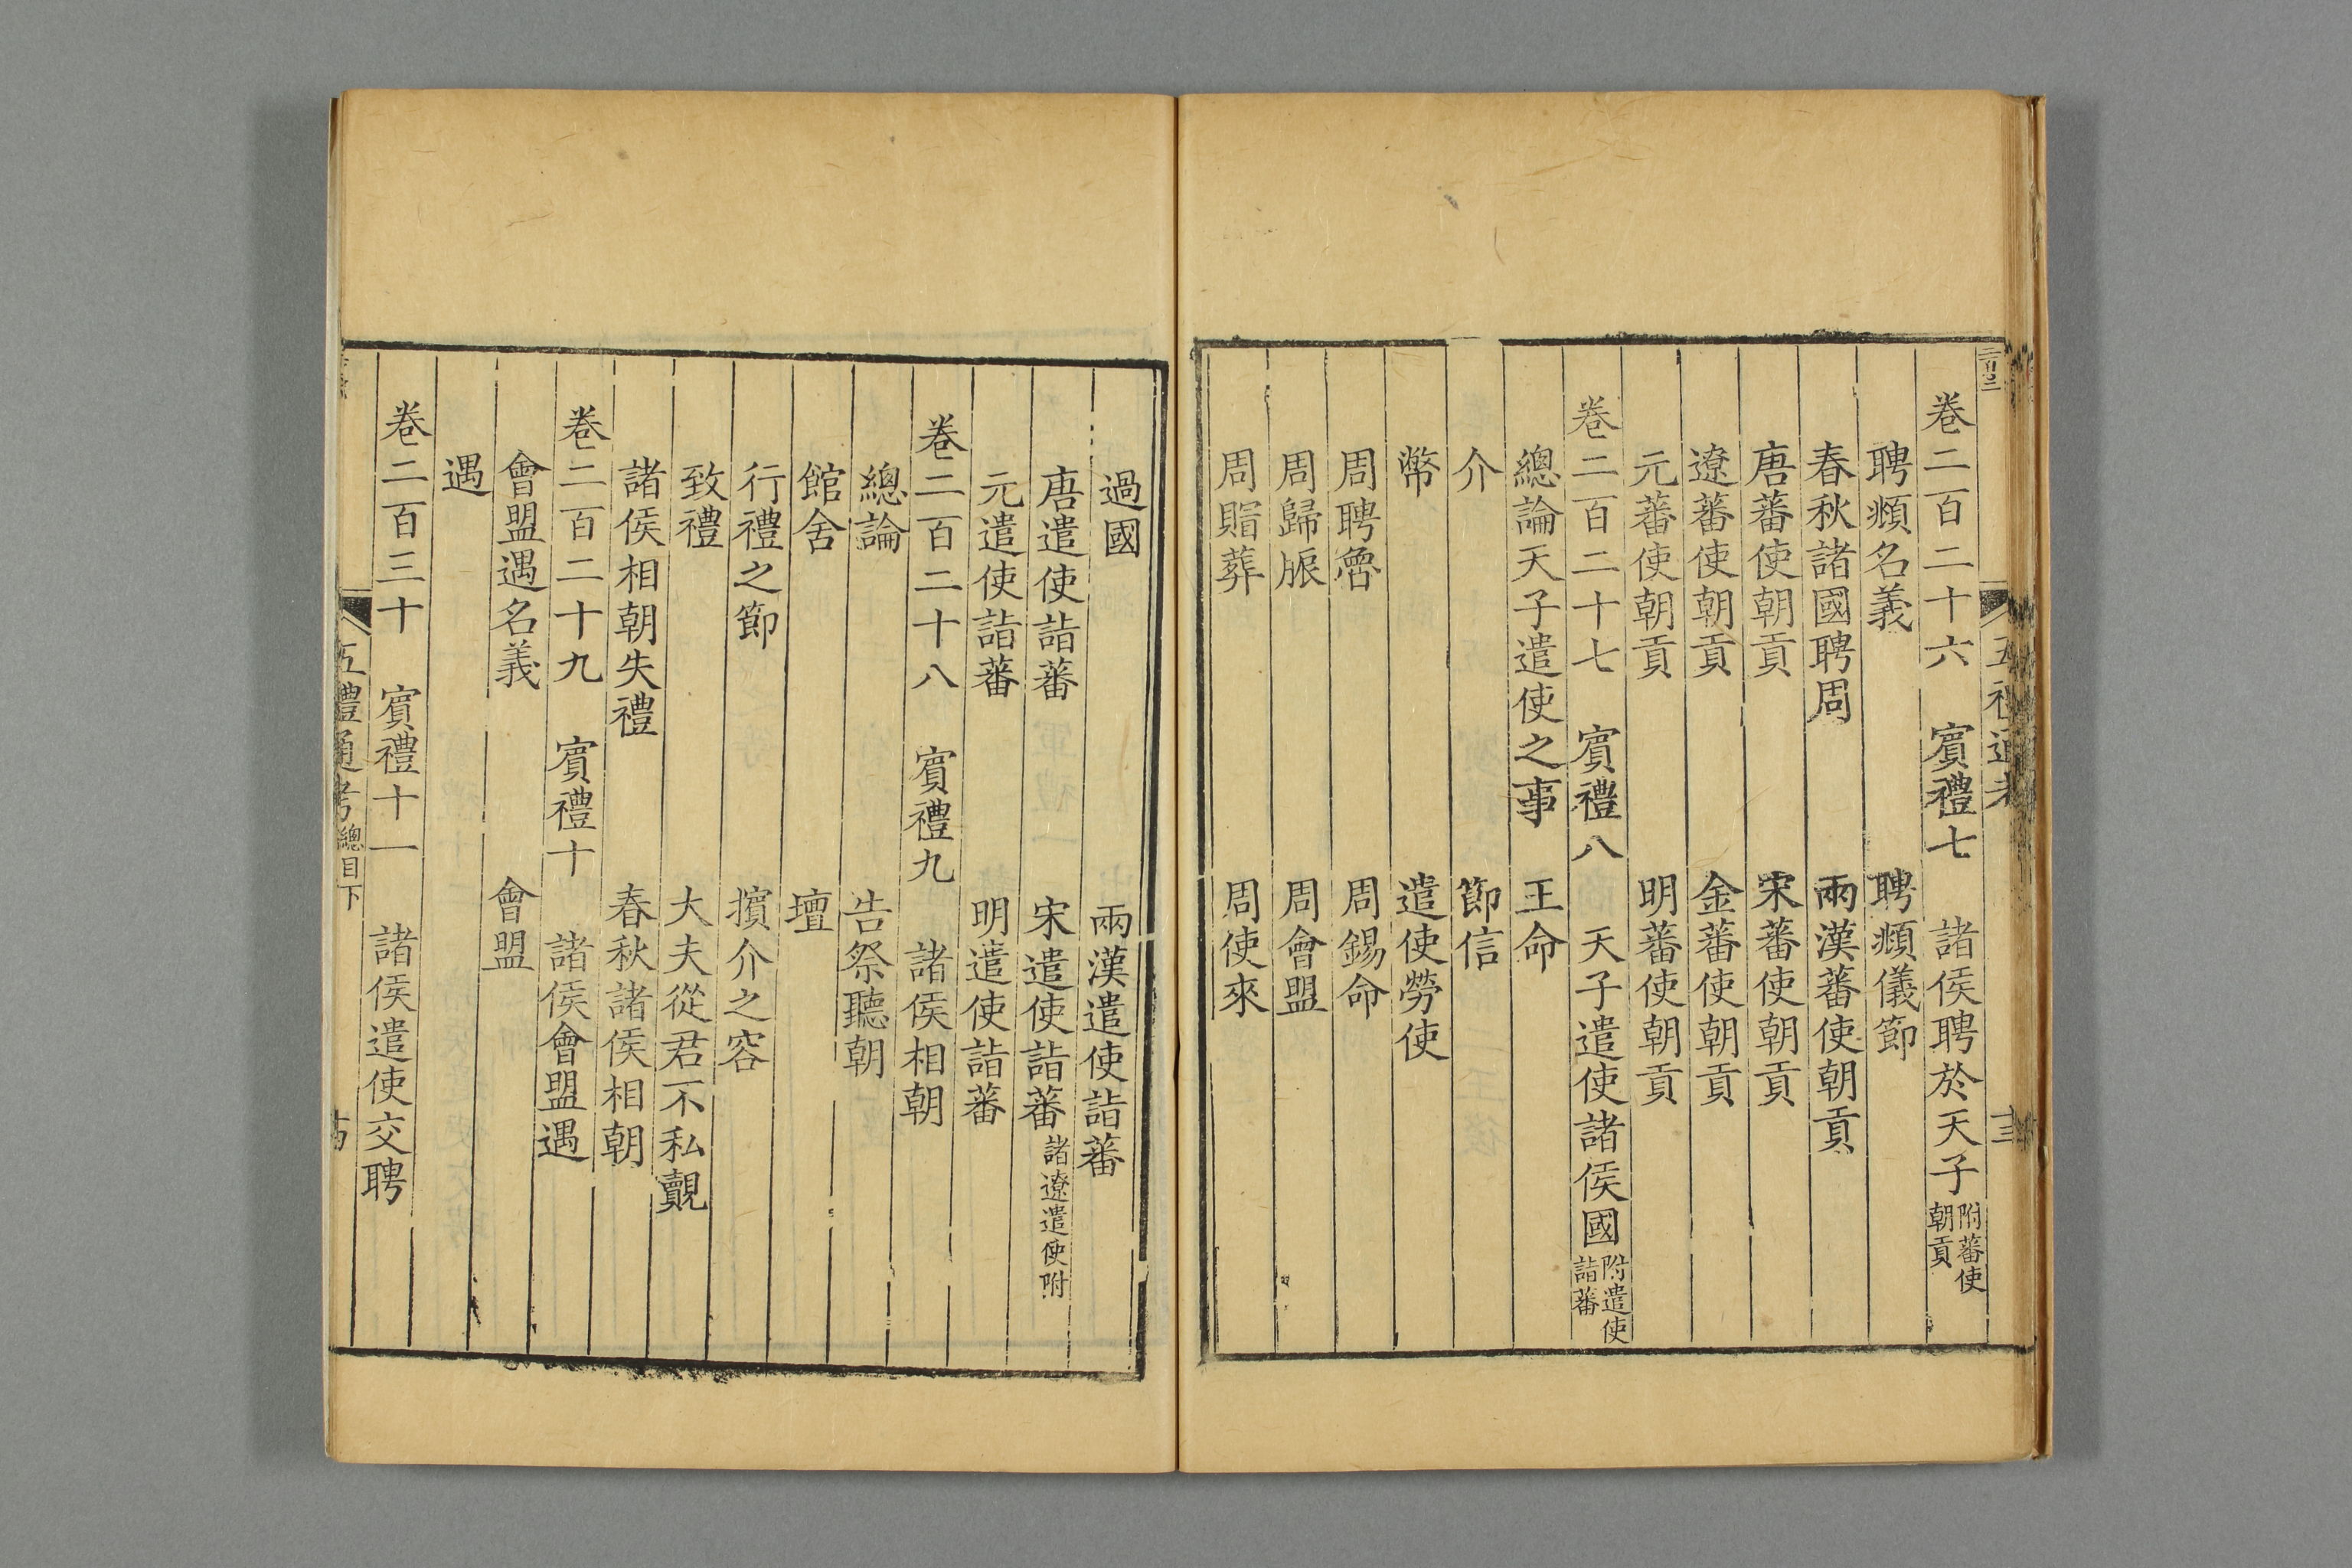 五禮通考 十三
卷二百二十六 賓禮七 諸侯聘於天子 附蕃使朝貢
聘頫名義 聘頫儀節
春秋諸國聘周 兩漢蕃使朝貢
唐蕃使朝貢 宋蕃使朝貢
遼蕃使朝貢 金蕃使朝貢
元蕃使朝貢 明蕃使朝貢
卷二百二十七 賓禮八 天子遣使諸侯國 附遣使詣蕃
總論天子遣使之事 王命
介 節信
幣 遣使勞使
周聘魯 周錫命
周歸脤 周會盟
周賵葬 周使來
過國 兩漢遣使詣蕃
唐遣使詣蕃 宋遣使詣蕃 諸遼遣使附
元遣使詣蕃 明遣使詣蕃
卷二百二十八 賓禮九 諸侯相朝
總論 告祭聽朝
館舍 壇
行禮之節 擯介之容
致禮 大夫從君不私覿
諸侯相朝失禮 春秋諸侯相朝
卷二百二十九 賓禮十 諸侯會盟遇
會盟遇名義 會盟
遇
卷二百三十 賓禮十一 諸侯遣使交聘
五禮通考 總目下